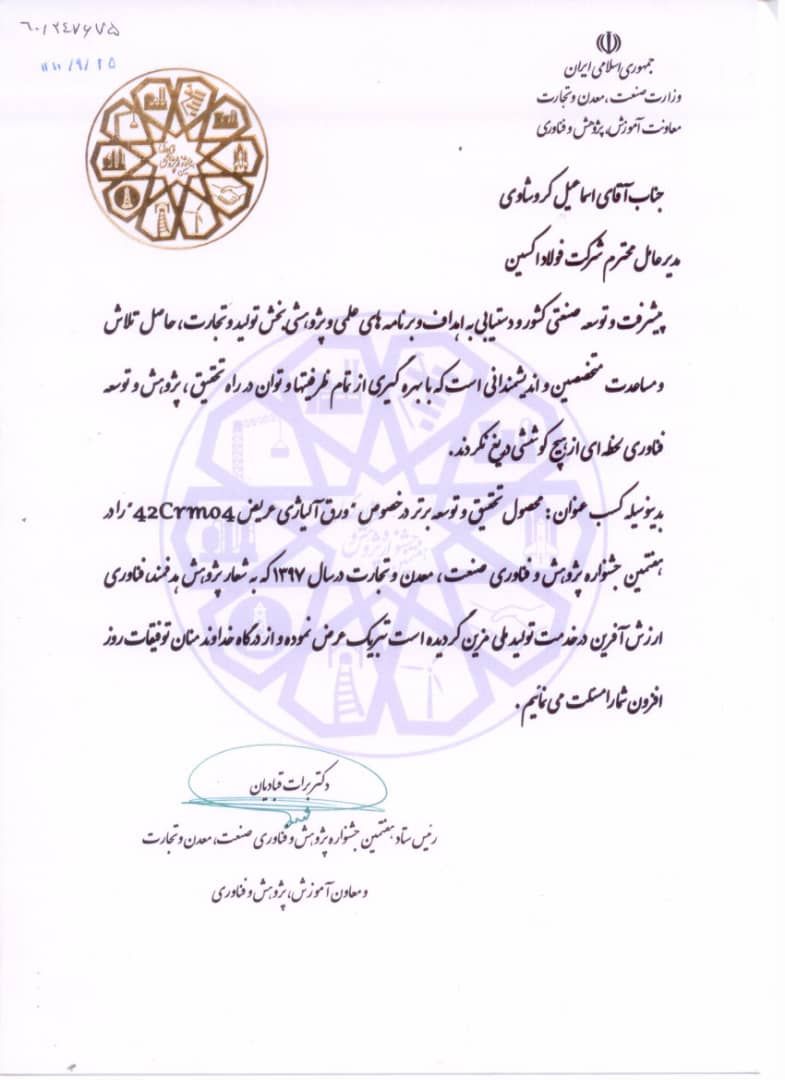 ۶۰/۲۴۷۶۷۵
جمهوری اسلامی ایران
وزارت صنعت، معدن و تجارت
معاونت آموزش، پژوهش و فناوری
جناب آقای اسماعیل کروشاوی
مدیرعامل محترم شرکت فولاد اکسین
پیشرفت و توسعه صنعتی کشور و دستیابی به اهداف و برنامه های علمی و پژوهشی بخش تولید و تجارت، حاصل تلاش
و مساعدت متخصصین و اندیشمندانی است که با بهره گیری از تمام ظرفیتها و توان در راه تحقیق، پژوهش و توسعه
فناوری لحظه ای از هیچ کوششی دریغ نکردند.
بدینوسیله کسب عنوان: محصول تحقیق و توسعه برتر درخصوص "ورق آلیاژی عریض 42Crmo4" را در
هفتمین جشنواره پژوهش و فناوری صنعت، معدن و تجارت درسال ۱۳۹۷ که به شعار پژوهش هدفمند، فناوری
ارزش آفرین درخدمت تولید ملی مزین گردیده است تبریک عرض نموده و از درگاه خداوند منان توفیقات روز
افزون شما را مسئلت می نمائیم.
دکتر برات قبادیان
رئیس ستاد هفتمین جشنواره پژوهش و فناوری صنعت، معدن و تجارت
و معاون آموزش، پژوهش و فناوری